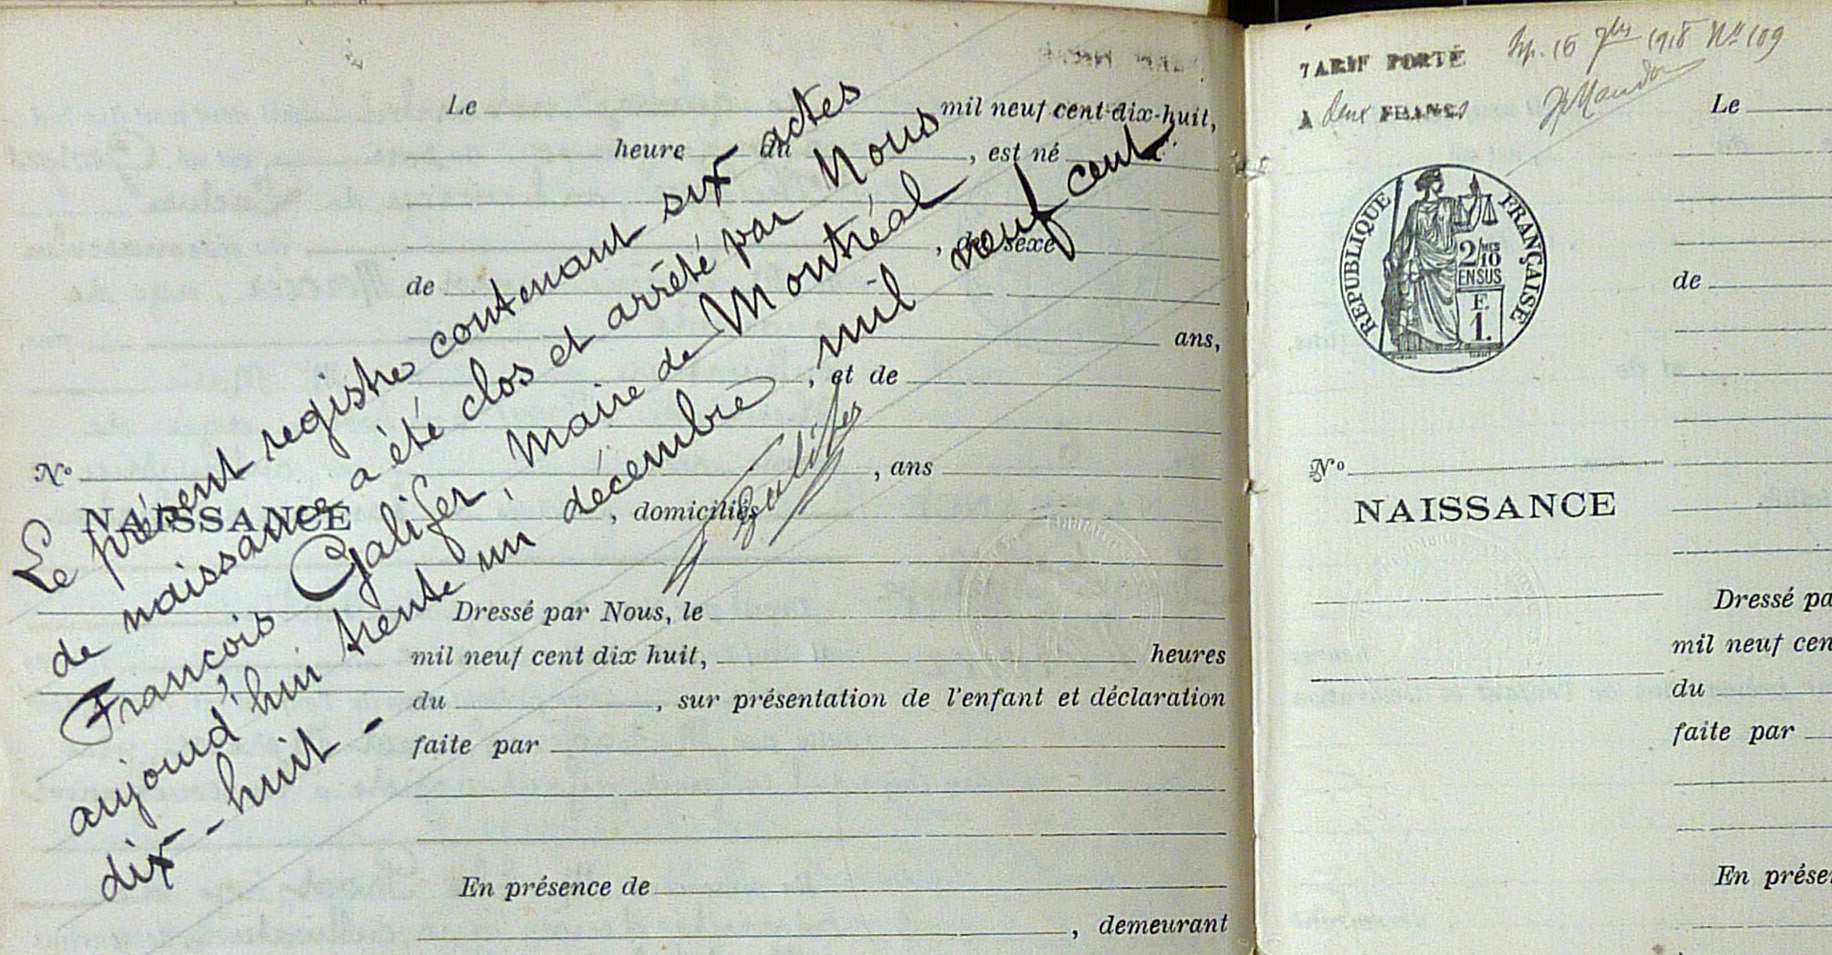 Le mil neuf cent dix-huit,
heure du , est né
, du sexe
de
ans,
, et de
, ans
, domiciliés
Dressé par Nous, le
mil neuf cent dix huit, heures
du , sur présentation de l'enfant et déclaration
faite par
En présence de
, demeurant
No
NAISSANCE
Le présent registre contenant six actes
de naissance a été clos et arrêté par Nous
François Galifer, Maire de Montréal
aujourd'hui trente un décembre mil neuf cent
dix-huit -
Galifer
TARIF PORTÉ
A deux FRANCS
16 7bre 1918 No 109
RÉPUBLIQUE FRANÇAISE
2/10
EN SUS
F.
1.
No
NAISSANCE
Le
de
Dressé pa
mil neuf cen
du
faite par
En prése